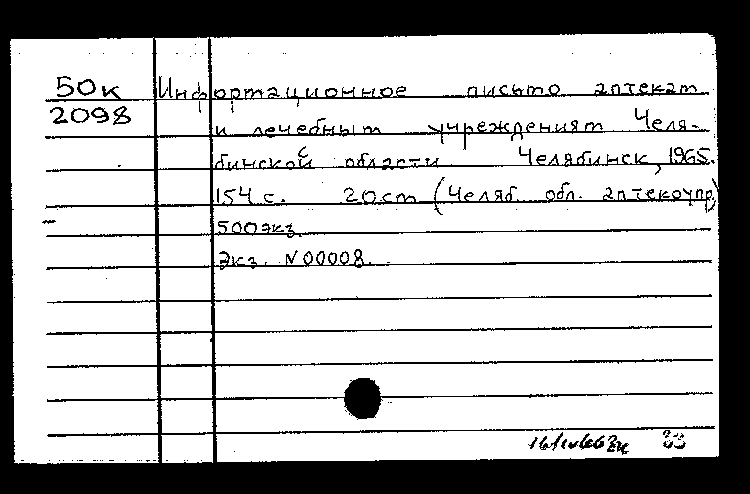 50к Информационное письмо аптекам
2098 и лечебным учреждениям Челя-
бинской области Челябинск, 1965.
154 с. 20см (Челяб. обл. аптекоупр)
500экз.
Экз. N00008.